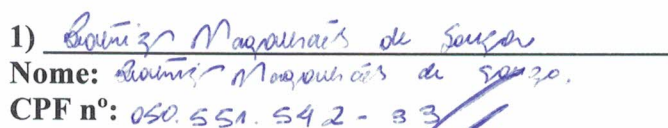 1) Beatriz Magalhães de Souza
Nome: Beatriz Magalhães de Souza.
CPF nº: 050.551.542-33